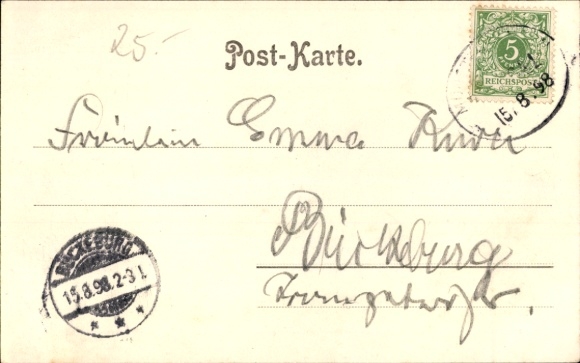 25.-
Post-Karte.
5
REICHSPOST
15.8.98
Fräulein Emma
Bückeburg
BÜCKEBURG
15.8.98.2-3 N.